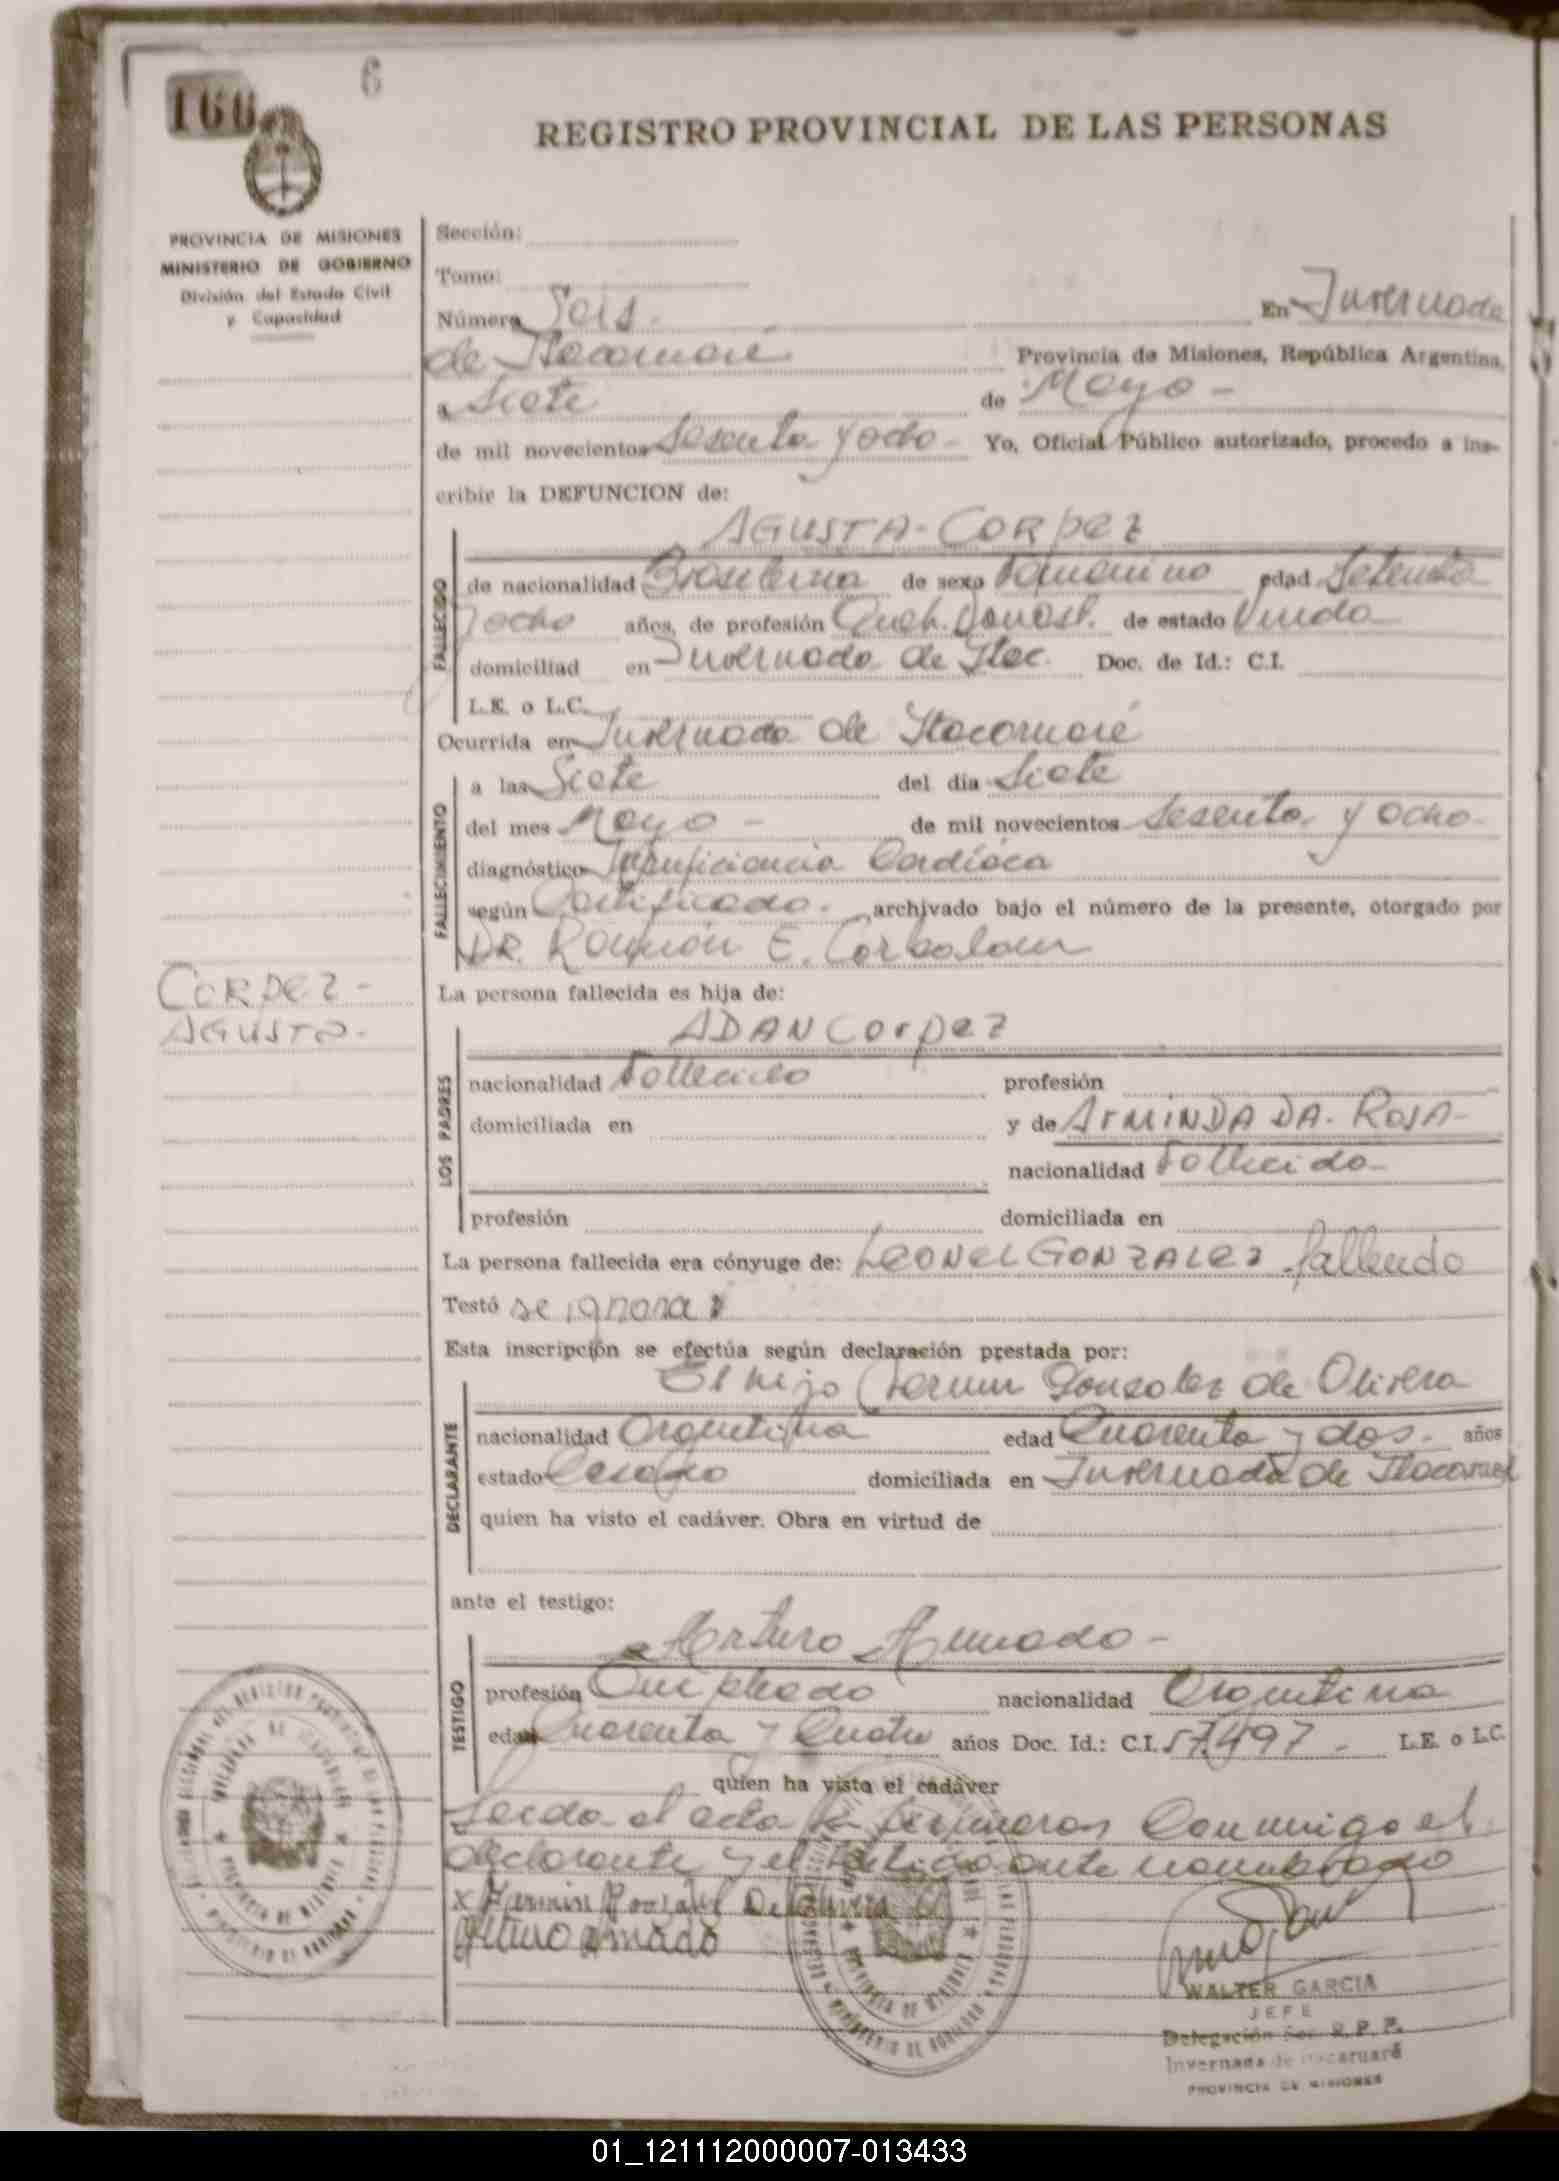 6
160
REGISTRO PROVINCIAL DE LAS PERSONAS
PROVINCIA DE MISIONES
MINISTERIO DE GOBIERNO
División del Estado Civil
y Capacidad
Sección:
Tomo:
Número Seis. En Invernada
de Itacaruaré Provincia de Misiones, República Argentina,
a Siete de Mayo -
de mil novecientos Sesenta y ocho - Yo, Oficial Público autorizado, procedo a ins-
cribir la DEFUNCION de:
AGUSTA - CORPEZ
FALLECIDO
de nacionalidad Brasilerña de sexo Femenino edad Setenta
y ocho años, de profesión Queh. Domest. de estado Viuda
domiciliad en Invernada de Itac. Doc. de Id.: C.I.
L.E. o L.C.
Ocurrida en Invernada de Itacaruaré
FALLECIMIENTO
a las Siete del día Siete
del mes Mayo - de mil novecientos Sesenta y ocho -
diagnóstico Insuficiencia Cardíaca
según Certificado - archivado bajo el número de la presente, otorgado por
DR. Ramón E.
CORPEZ -
AGUSTA -
La persona fallecida es hija de:
ADAN CORPEZ
LOS PADRES
nacionalidad Fallecido profesión
domiciliada en y de ARMINDA DA. ROSA -
nacionalidad Fallecida -
profesión domiciliada en
La persona fallecida era cónyuge de: LEONEL GONZALEZ fallecido
Testó se ignora
Esta inscripción se efectúa según declaración prestada por:
El hijo Gonzalez de Olivera
DECLARANTE
nacionalidad Argentina edad Cuarenta y dos - años
estado Casado domiciliada en Invernada de Itacaruaré
quien ha visto el cadáver. Obra en virtud de
ante el testigo:
Arturo Amado -
TESTIGO
profesión Empleado nacionalidad Argentina
edad Cuarenta y Cuatro años Doc. Id.: C.I. 57.497 - L.E. o L.C.
quien ha visto el cadáver
Leida el acta la firmaron Conmigo el
declarante y el testigo ante nombrado
x De Olivera
Arturo Amado
WALTER GARCIA
JEFE
Delegación Sec. R. P. P.
Invernada de Itacaruaré
PROVINCIA DE MISIONES
01_121112000007-013433